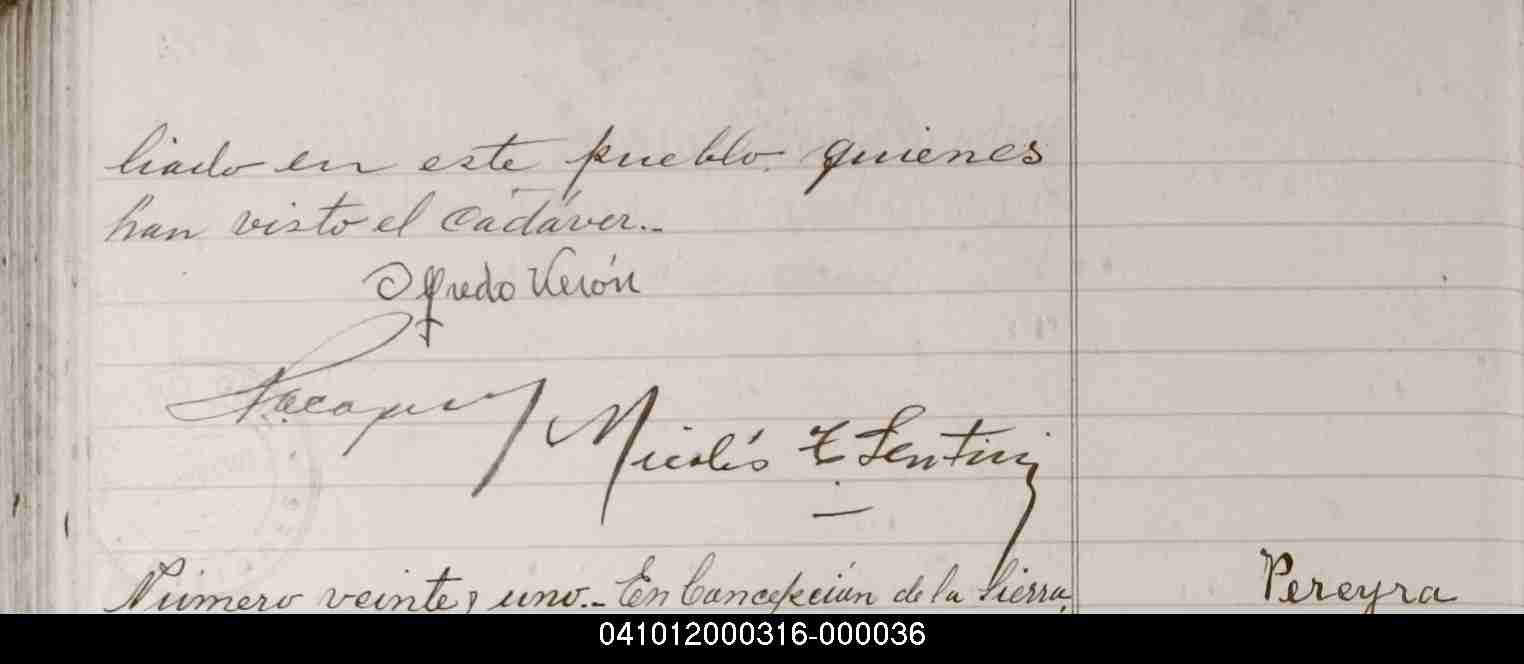 liado en este pueblo quienes
han visto el cadáver.-
Alfredo Verón
Nicolás
Número veinte y uno.- En Concepción de la Sierra,
Pereyra
041012000316-000036